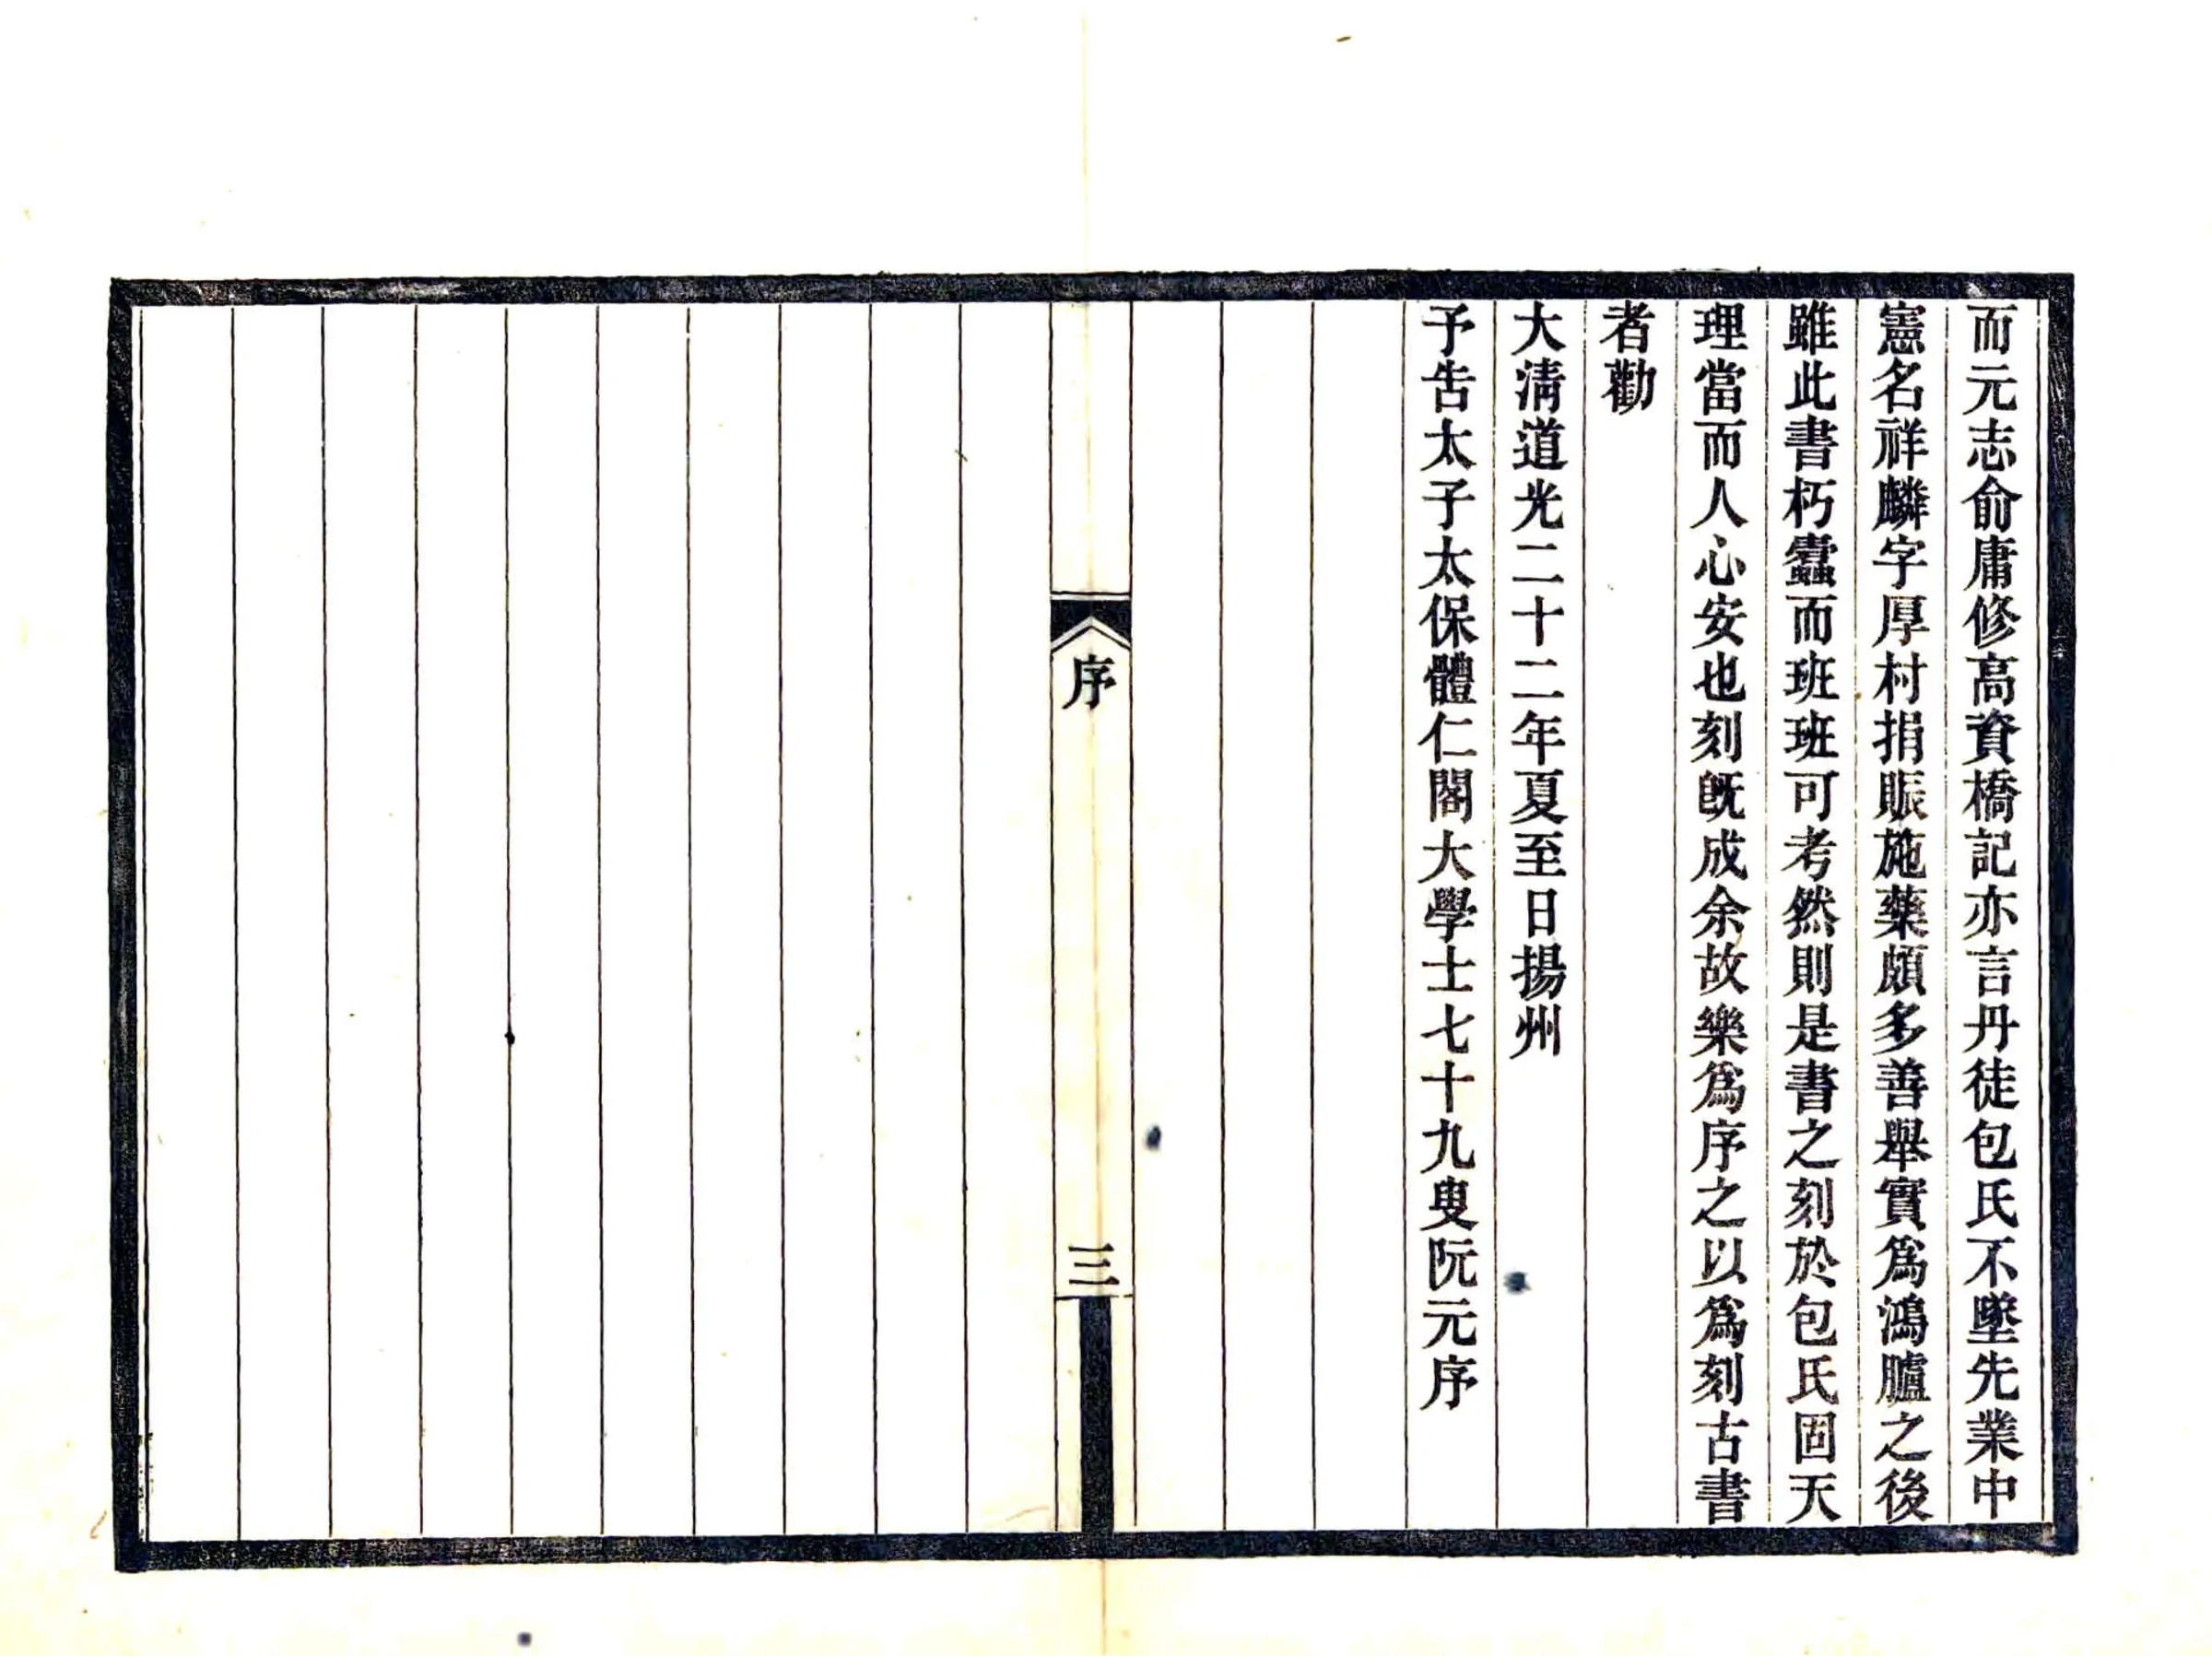 而元志俞庸修高資橋記亦言丹徒包氏不墜先業中
憲名祥麟字厚村捐賑施藥頗多善舉實爲鴻臚之後
雖此書朽蠹而班班可考然則是書之刻於包氏固天
理當而人心安也刻既成余故樂爲序之以爲刻古書
者勸
大清道光二十二年夏至日揚州
予告太子太保體仁閣大學士七十九叟阮元序
序
三